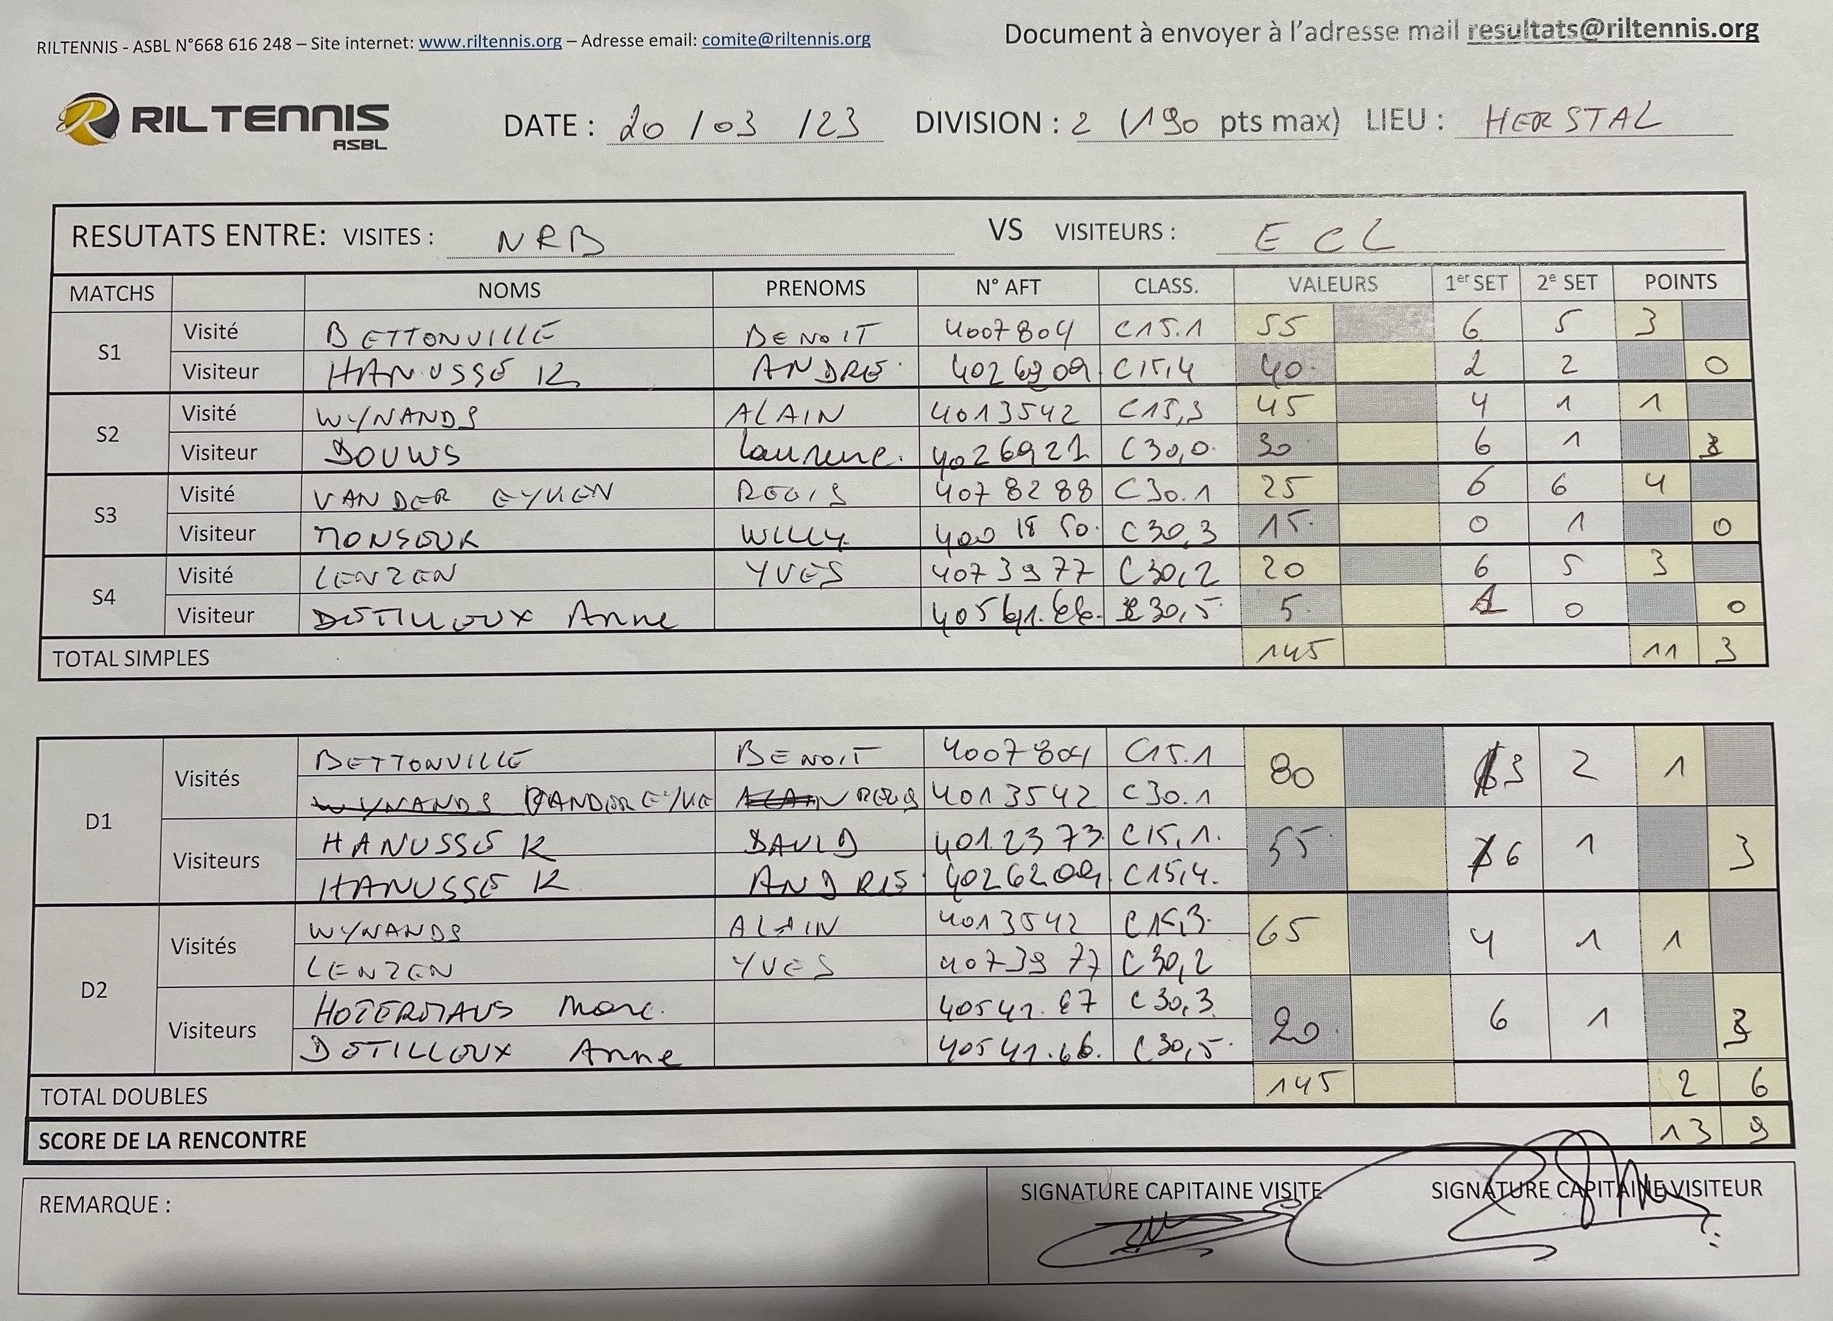 RILTENNIS - ASBL N°668 616 248 – Site internet: www.riltennis.org – Adresse email: comite@riltennis.org
Document à envoyer à l'adresse mail resultats@riltennis.org
RILTENNIS
ASBL
DATE : 20 / 03 / 23 DIVISION : 2 (190 pts max) LIEU : HERSTAL
RESUTATS ENTRE: VISITES : NRB VS VISITEURS : ECL
MATCHS NOMS PRENOMS N° AFT CLASS. VALEURS 1er SET 2e SET POINTS
S1
Visité BETTONVILLE BENOIT 4007804 C15.1 55 6 5 3
Visiteur HANUSSEK ANDRE 4026209 C15,4 40 2 2 0
S2
Visité WYNANDS ALAIN 4013542 C15,3 45 4 1 1
Visiteur DOUWS Laurence. 4026921 C30,0. 30 6 1 3
S3
Visité VAN DER EYKEN REGIS 4078288 C30.1 25 6 6 4
Visiteur MONSEUR WILLY 400 18 50. C30,3 15. 0 1 0
S4
Visité LENZEN YVES 4073977 C30,2 20 6 5 3
Visiteur DETILLOUX Anne 40541.66. C30,5. 5. 1 0 0
TOTAL SIMPLES 145 11 3
D1
Visités BETTONVILLE BENOIT 4007804 C15.1 80 3 2 1
WYNANDS VANDEREYKE ALAIN REGIS 4013542 C30.1
Visiteurs HANUSSEK DAVID 401.23 73. C15,1. 55 6 1 3
HANUSSEK ANDRE 4026209. C15,4.
D2
Visités WYNANDS ALAIN 4013542 C15,3. 65 4 1 1
LENZEN YVES 4073977 C30,2
Visiteurs HOTERMANS Marc. 40541.67 C30,3 20. 6 1 3
DETILLOUX Anne 40541.66. C30,5.
TOTAL DOUBLES 145 2 6
SCORE DE LA RENCONTRE 13 9
REMARQUE :
SIGNATURE CAPITAINE VISITE
SIGNATURE CAPITAINE VISITEUR